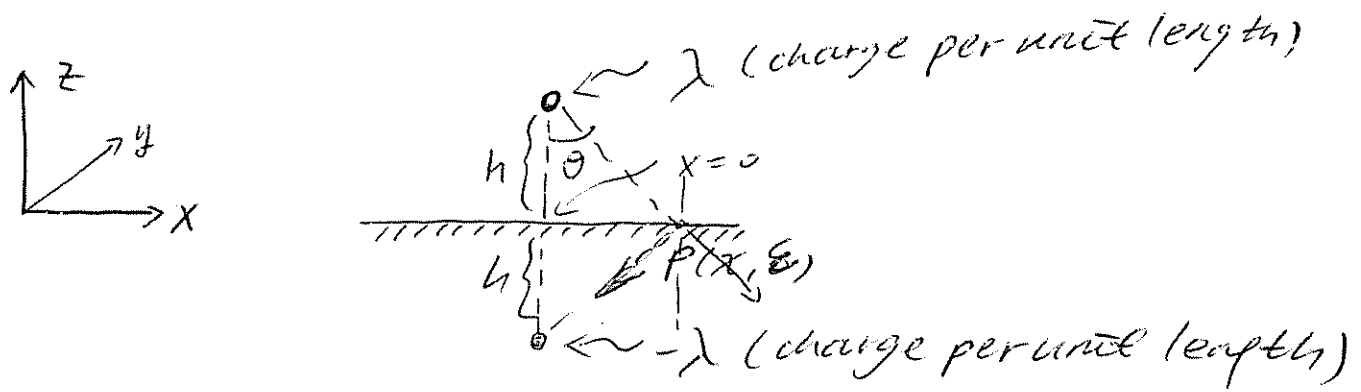 λ (charge per unit length)
z
y
x
h
θ
x=0
h
P(x, ε)
-λ (charge per unit length)